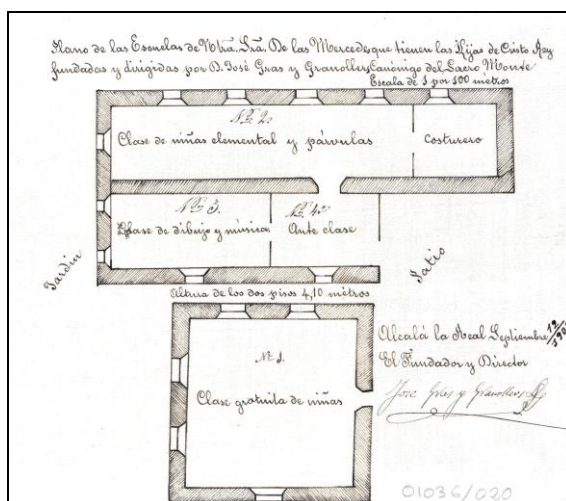 Plano de las Escuelas de Ntra. Sra. De las Mercedes que tienen las Hijas de Cristo Rey
fundadas y dirigidas por D. José Gras y Granollers Canónigo del Sacro Monte
Escala de 1 por 100 metros
Nº 2º
Clase de niñas elemental y párvulas
Costurero
Nº 3.
Clase de dibujo y música
Nº 4º
Ante clase
Jardín
Patio
Altura de los dos pisos 4,10 metros
Nº 1.
Clase gratuita de niñas
Alcalá la Real Septiembre
El Fundador y Director
José Gras y Granollers
01036/020